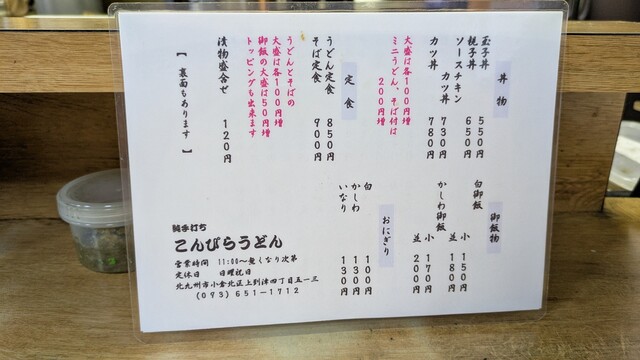 丼物
玉子丼 550円
親子丼 650円
ソースチキン
カツ丼 730円
カツ丼 780円
大盛は各100円増
ミニうどん、そば付は
200円増
定食
うどん定食 850円
そば定食 900円
うどんとそばの
大盛は各100円増
御飯の大盛は50円増
トッピングも出来ます
漬物盛合せ 120円
【裏面もあります】
御飯物
白御飯 小 150円
並 180円
かしわ御飯 小 170円
並 200円
おにぎり
白 100円
かしわ 130円
いなり 130円
純手打ち
こんぴらうどん
営業時間 11:00〜無くなり次第
定休日 日曜祝日
北九州市小倉北区上到津四丁目五ー三
(093)651-1712